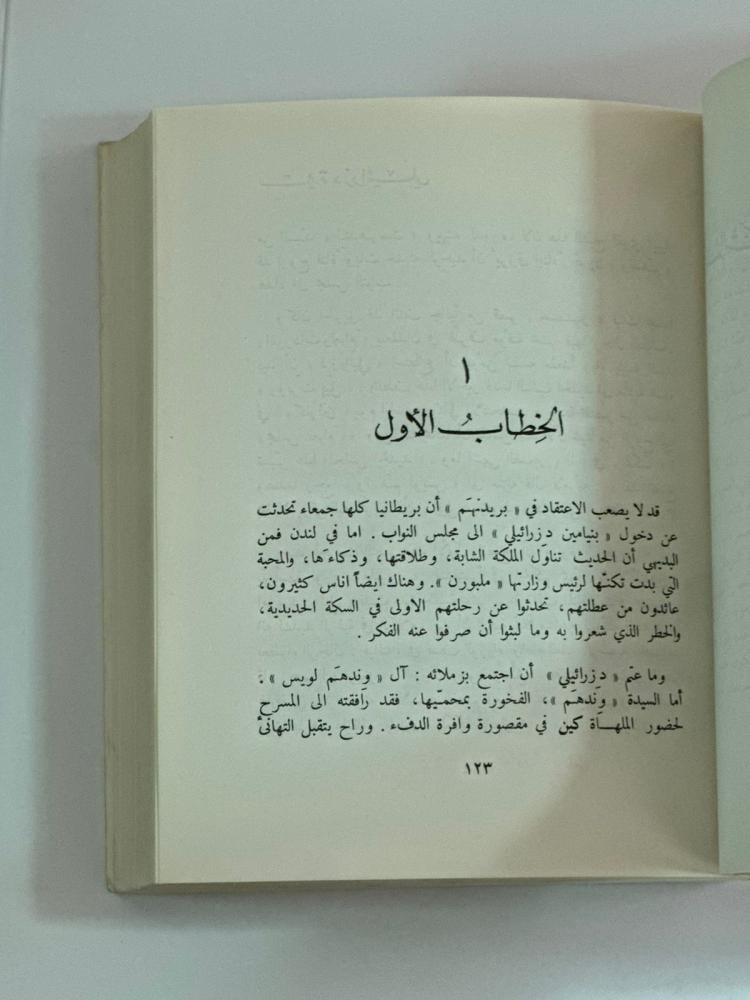 ١
الخِطابُ الأول
قد لا يصعب الاعتقاد في « بريدنهَم » أن بريطانيا كلها جمعاء تحدثت
عن دخول « بنيامين دزرائيلي » الى مجلس النواب . اما في لندن فمن
البديهي أن الحديث تناوَل الملكة الشابة، وطلاقتها، وذكاءَها، والمحبة
التي بدت تكنّها لرئيس وزارتها « ملبورن ». وهناك ايضاً اناس كثيرون،
عائدون من عطلتهم، تحدثوا عن رحلتهم الاولى في السكة الحديدية،
والخطر الذي شعروا به وما لبثوا أن صرفوا عنه الفكر .
وما عتم « دزرائيلي » أن اجتمع بزملائه : آل « وندهَم لويس » .
أما السيدة « وَندهَم »، الفخورة بمحميّها، فقد رَافقته الى المسرح
لحضور الملهاة كين في مقصورة وافرة الدفء . وراح يتقبل التهانئ
١٢٣